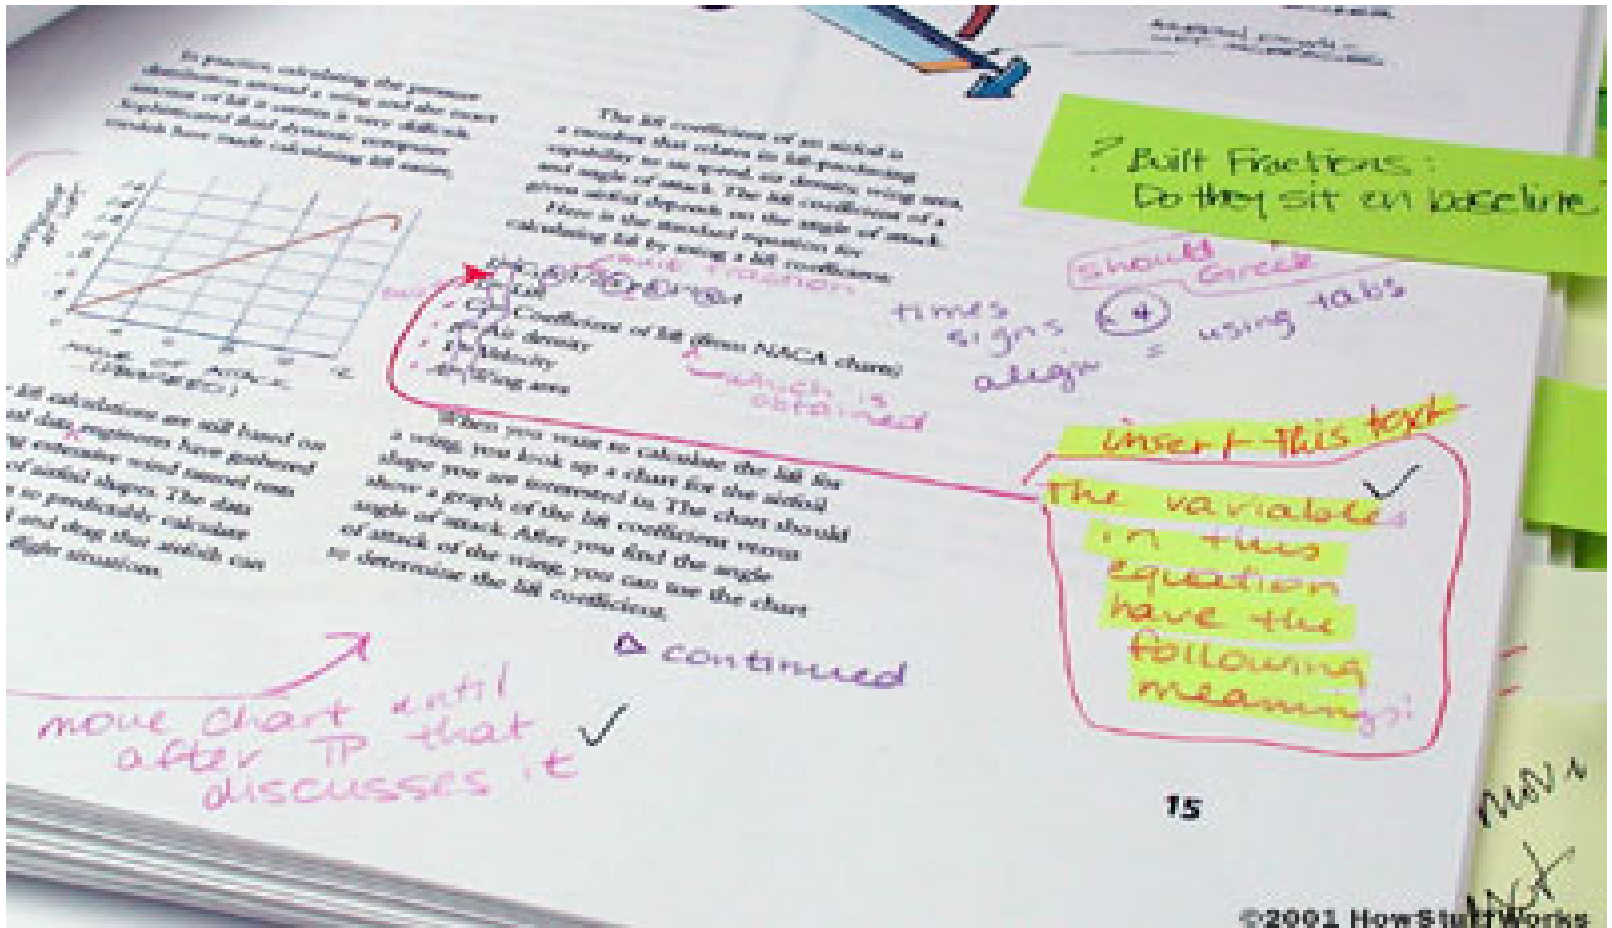 In practice, calculating the pressure
distribution around a wing and the exact
amount of lift it creates is very difficult.
Sophisticated fluid dynamic computer
models have made calculating lift easier,
ANGLE OF ATTACK
(DEGREES)
lift calculations are still based on
data engineers have gathered
extensive wind tunnel tests
of airfoil shapes. The data
to predictably calculate
and drag that airfoils can
flight situations.
The lift coefficient of an airfoil is
a number that relates its lift-producing
capability to air speed, air density, wing area,
and angle of attack. The lift coefficient of a
given airfoil depends on the angle of attack.
Here is the standard equation for
calculating lift by using a lift coefficient:
built fraction
Lift
Coefficient of lift (from NACA charts)
Air density
Velocity
Wing area
which is
obtained
When you want to calculate the lift for
a wing, you look up a chart for the airfoil
shape you are interested in. The chart should
show a graph of the lift coefficient versus
angle of attack. After you find the angle
of attack of the wing, you can use the chart
to determine the lift coefficient.
continued
move chart until
after TP that
discusses it
? Built Fractions:
Do they sit on baseline?
should
Greek
times
signs
align = using tabs
insert this text
the variables
in this
equation
have the
following
meanings:
15
move
©2001 HowStuffWorks